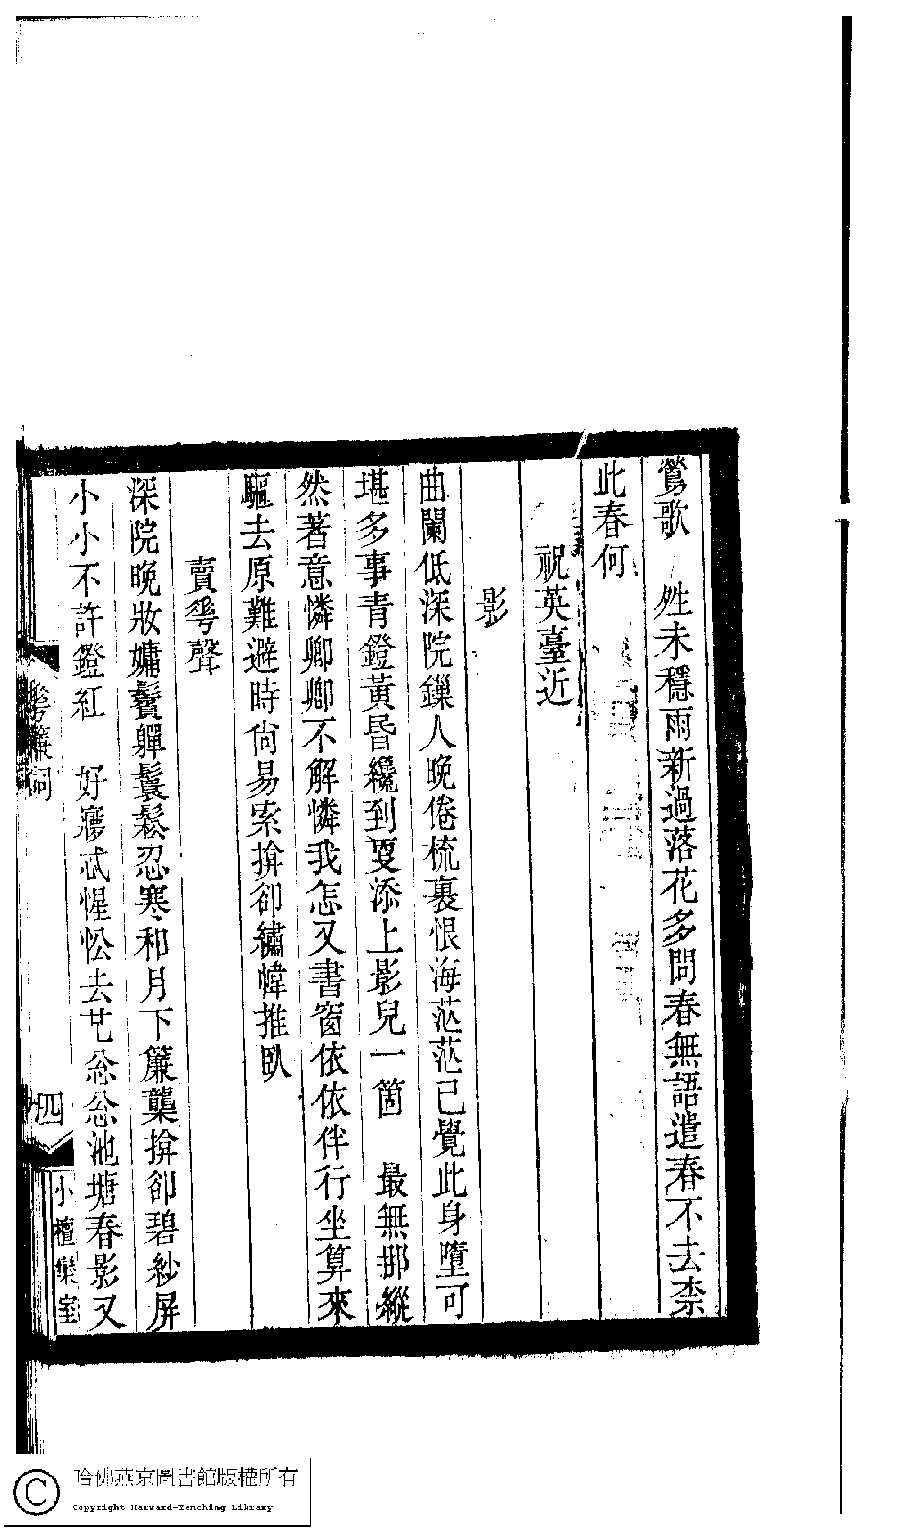 鶯歌　甡未穩雨新過落花多問春無語遣春不去柰
此春何
祝英臺近
影
曲闌低深院鏁人晚倦梳裹恨海茫茫已覺此身墮可
堪多事青鐙黃昏纔到更添上影兒一箇　最無那縱
然著意憐卿卿不解憐我怎又書窗依依伴行坐算來
驅去原難避時尙易索揜卻繡幃推臥
賣花聲
深院晚妝慵鬢嚲鬟鬆忍寒和月下簾櫳揜卻碧紗屏
小小不許鐙紅　好寢忒惺忪去也怱怱池塘春影又
簾詞
四
小檀欒室
哈佛燕京圖書館版權所有
Copyright Harvard-Yenching Library